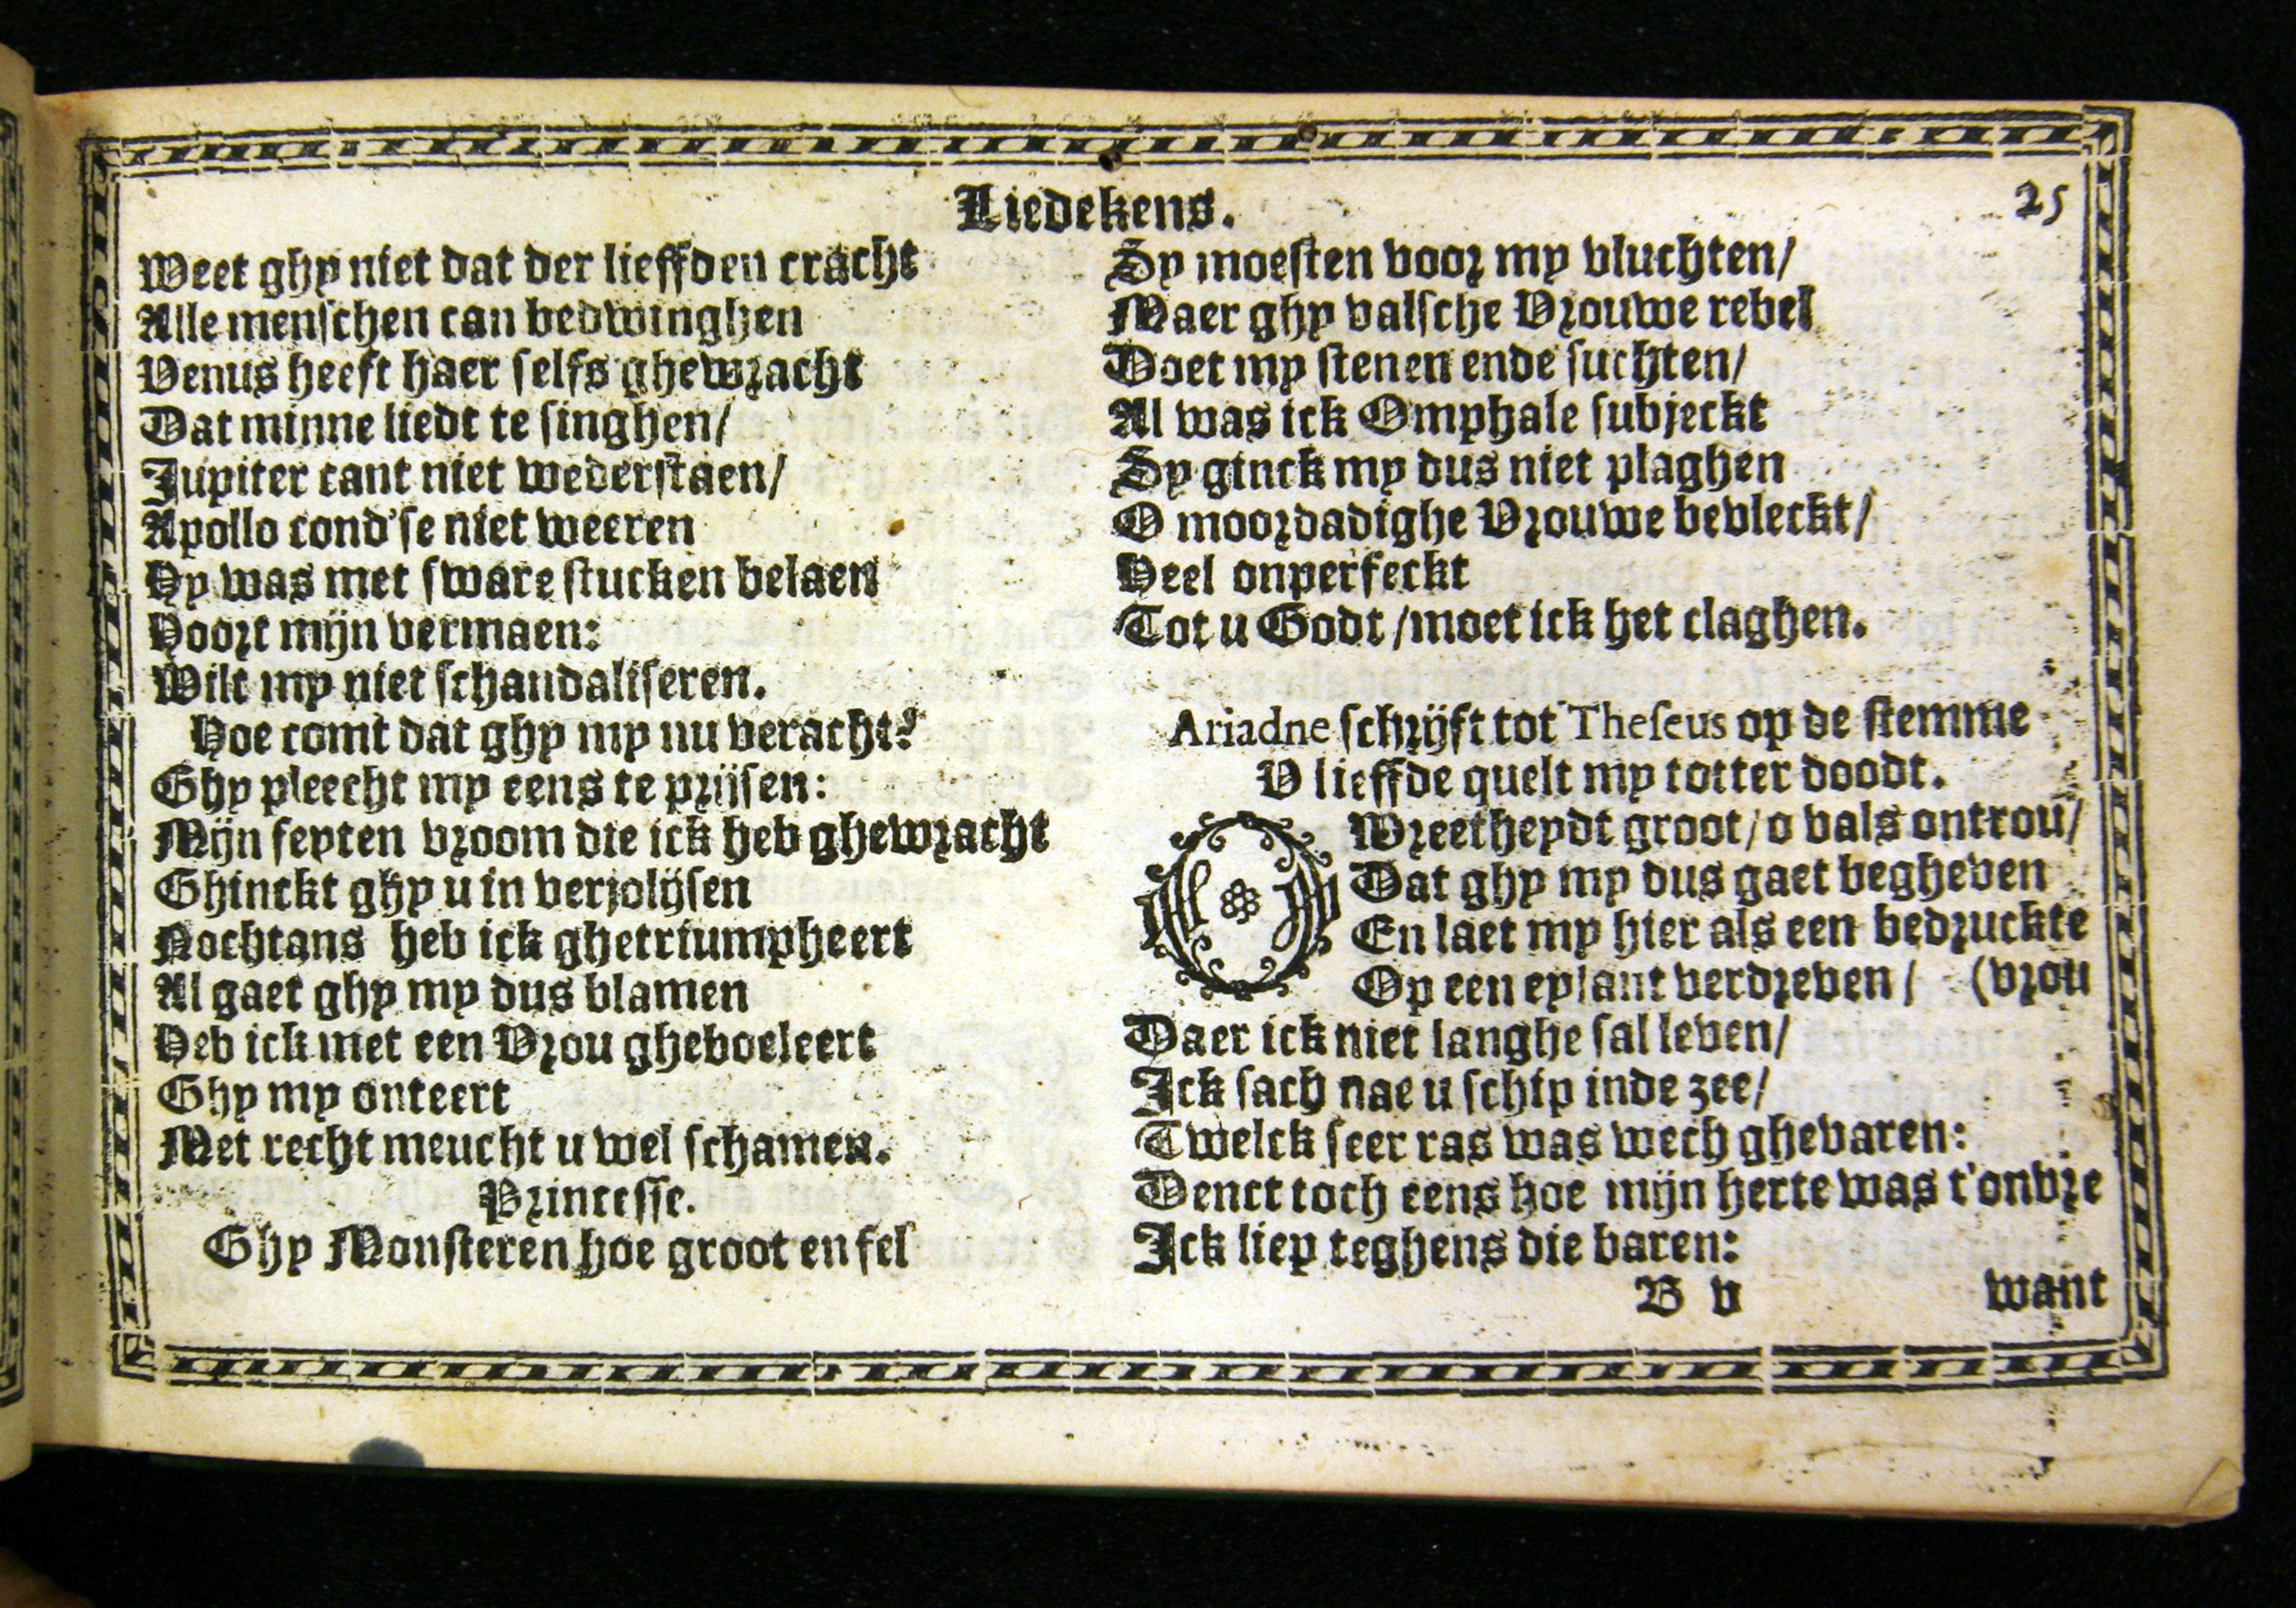 Liedekens.
25
Weet ghy niet dat der lieffden cracht
Alle menschen can bedwinghen
Venus heeft haer selfs ghewracht
Dat minne liedt te singhen/
Jupiter cant niet wederstaen/
Apollo cond'se niet weeren
Hy was met sware stucken belaen
Hoort mijn vermaen:
Wilt my niet schandaliseren.
Hoe comt dat ghy my nu veracht?
Ghy pleecht my eens te prijsen:
Mijn feyten vroom die ick heb ghewracht
Ghinckt ghy u in verjolijsen
Nochtans heb ick ghetriumpheert
Al gaet ghy my dus blamen
Heb ick met een Vrou gheboeleert
Ghy my onteert
Met recht meucht u wel schamen.
Princesse.
Ghy Monsteren hoe groot en fel
Sy moesten voor my vluchten/
Maer ghy valsche Vrouwe rebel
Doet my stenen ende suchten/
Al was ick Omphale subjeckt
Sy ginck my dus niet plaghen
O moordadighe Vrouwe bevleckt/
Heel onperfeckt
Tot u Godt/moet ick het claghen.
Ariadne schrijft tot Theseus op de stemme
V lieffde quelt my totter doodt.
O Wreetheydt groot/o vals ontrou/
Dat ghy my dus gaet begheven
En laet my hier als een bedruckte
Op een eylant verdreven/ (vrou
Daer ick niet langhe sal leven/
Ick sach nae u schip inde zee/
Twelck seer ras was wech ghevaren:
Denct toch eens hoe mijn herte was t'onvre
Ick liep teghens die baren:
B v want